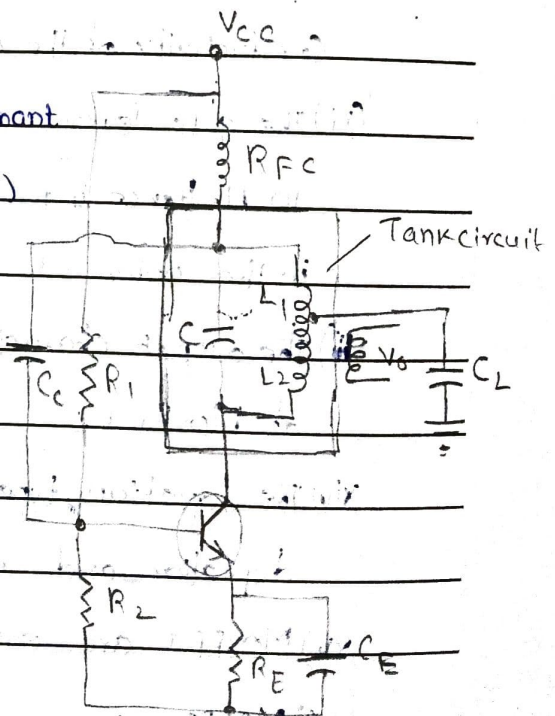 Vcc
nant
RFC
)
Tank circuit
L1
C
L2
Vo
CL
Cc
R1
R2
RE
CE